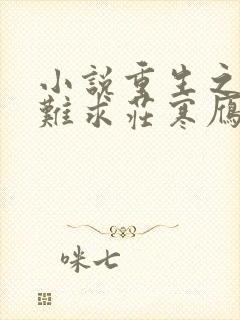 小說重生之
難求莊寒雁
咪七